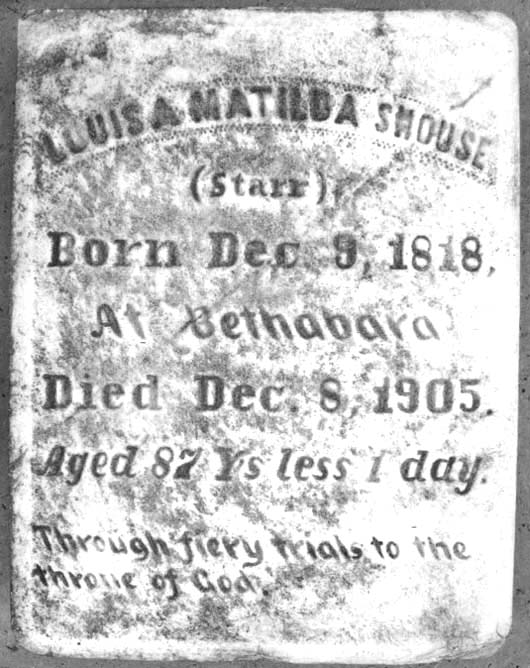 LOUISA MATILDA SHOUSE
(Starr),
Born Dec. 9, 1818,
At Bethabara
Died Dec. 8, 1905.
Aged 87 Ys less 1 day.
Through fiery trials to the
throne of God.